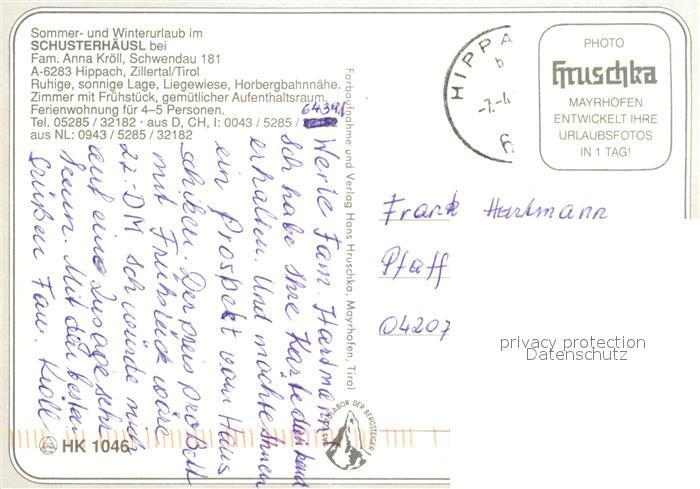 Sommer- und Winterurlaub im
SCHUSTERHÄUSL bei
Fam. Anna Kröll, Schwendau 181
A-6283 Hippach, Zillertal/Tirol
Ruhige, sonnige Lage, Liegewiese, Horbergbahnnähe.
Zimmer mit Frühstück, gemütlicher Aufenthaltsraum,
Ferienwohnung für 4–5 Personen.
Tel. 05285 / 32182 · aus D, CH, I: 0043 / 5285 /
aus NL: 0943 / 5285 / 32182
Werte Fam. Hartmann
Ich habe Ihre Karte dankend
erhalten. Und möchte Ihnen
ein Prospekt vom Haus
schiken. Der preis pro Bett
mit Frühstück wäre
22-DM ich würde mich
auf eine Zusage sehr
freun. Mit den besten
Grüßen Fam. Kröll
Farbaufnahme und Verlag Hans Hruschka, Mayrhofen, Tirol
HIPPA
b
PHOTO
Hruschka
MAYRHOFEN
ENTWICKELT IHRE
URLAUBSFOTOS
IN 1 TAG!
Frank Hartmann
Pfaff
04207
privacy protection
Datenschutz
HK 1046